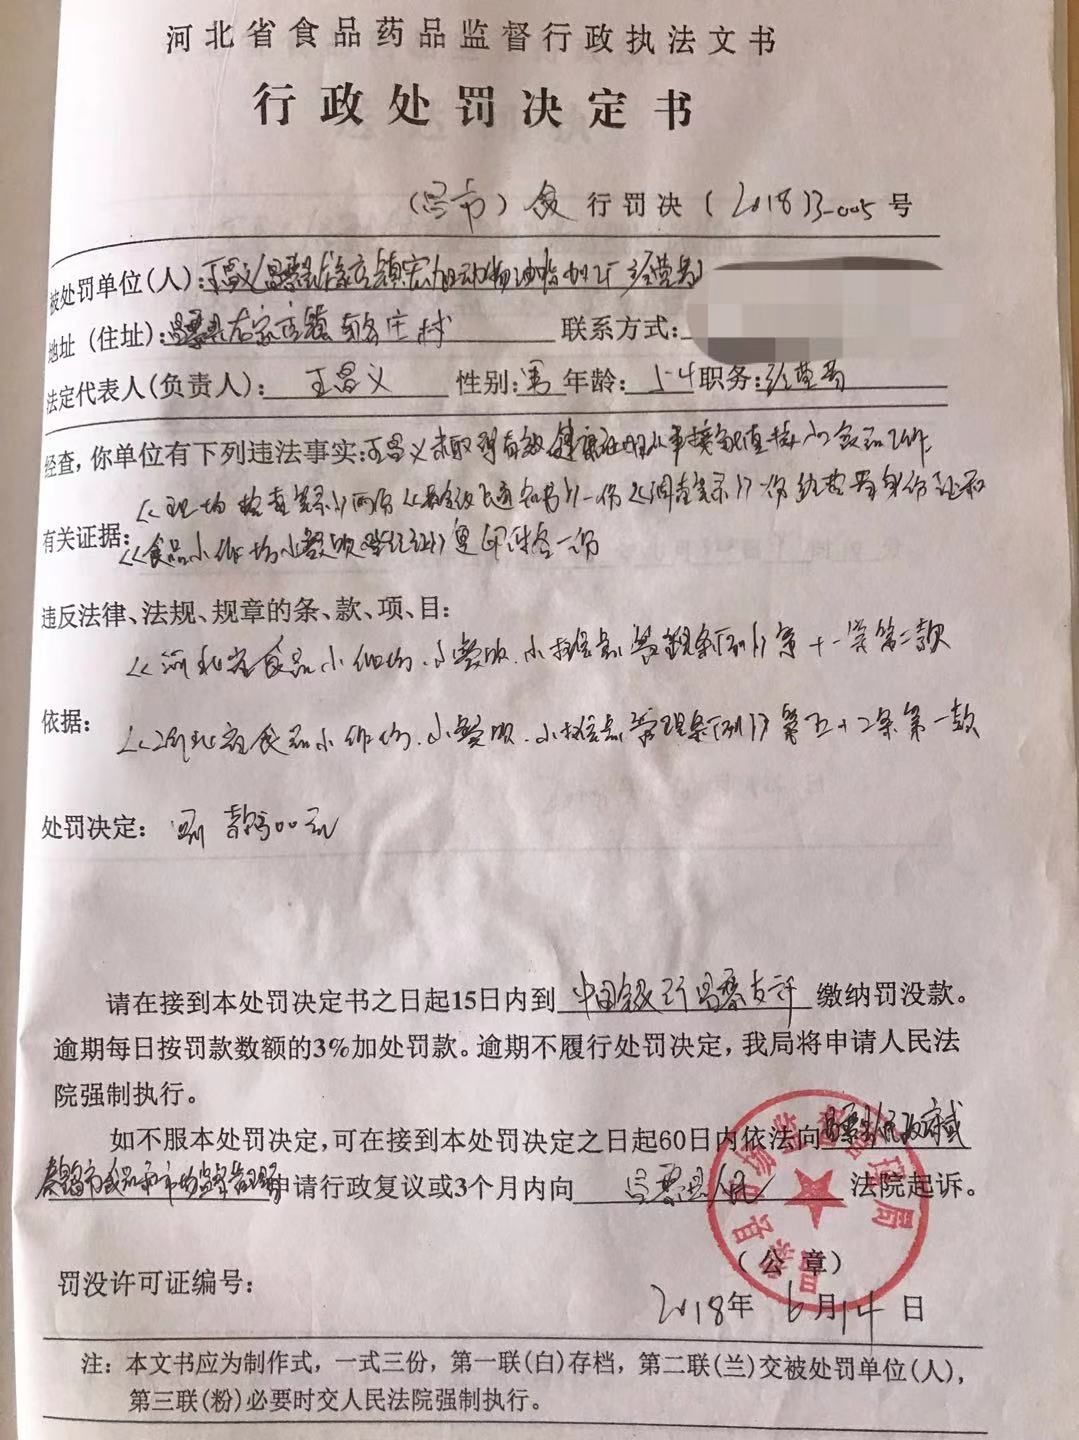 河北省食品药品监督行政执法文书
行政处罚决定书
(昌市)食行罚决〔2018〕3-005号
被处罚单位(人):王昌义(昌黎县 镇宏 动物油脂加工厂经营者)
地址(住址):昌黎县 家店镇 庄村 联系方式:
法定代表人(负责人):王昌义 性别:男 年龄:54 职务:经营者
经查,你单位有下列违法事实:王昌义未取得有效健康证明从事接触直接入口食品工作
有关证据:《现场检查笔录》两份《 通知书》一份《调查笔录》一份经营者身份证和
《食品小作坊小餐饮登记证》复印件各一份
违反法律、法规、规章的条、款、项、目:
《河北省食品小作坊、小餐饮、小摊点管理条例》第十一条第二款
依据:
《河北省食品小作坊、小餐饮、小摊点管理条例》第五十二条第一款
处罚决定:罚款 00元
请在接到本处罚决定书之日起15日内到 中国银行昌黎支行 缴纳罚没款。
逾期每日按罚款数额的3%加处罚款。逾期不履行处罚决定,我局将申请人民法
院强制执行。
如不服本处罚决定,可在接到本处罚决定之日起60日内依法向昌黎县人民政府或
秦皇岛市食品和市场监督管理局申请行政复议或3个月内向 昌黎县人民 法院起诉。
昌黎县市场监督管理局
(公章)
罚没许可证编号:
2018年6月14日
注:本文书应为制作式,一式三份,第一联(白)存档,第二联(兰)交被处罚单位(人),
第三联(粉)必要时交人民法院强制执行。